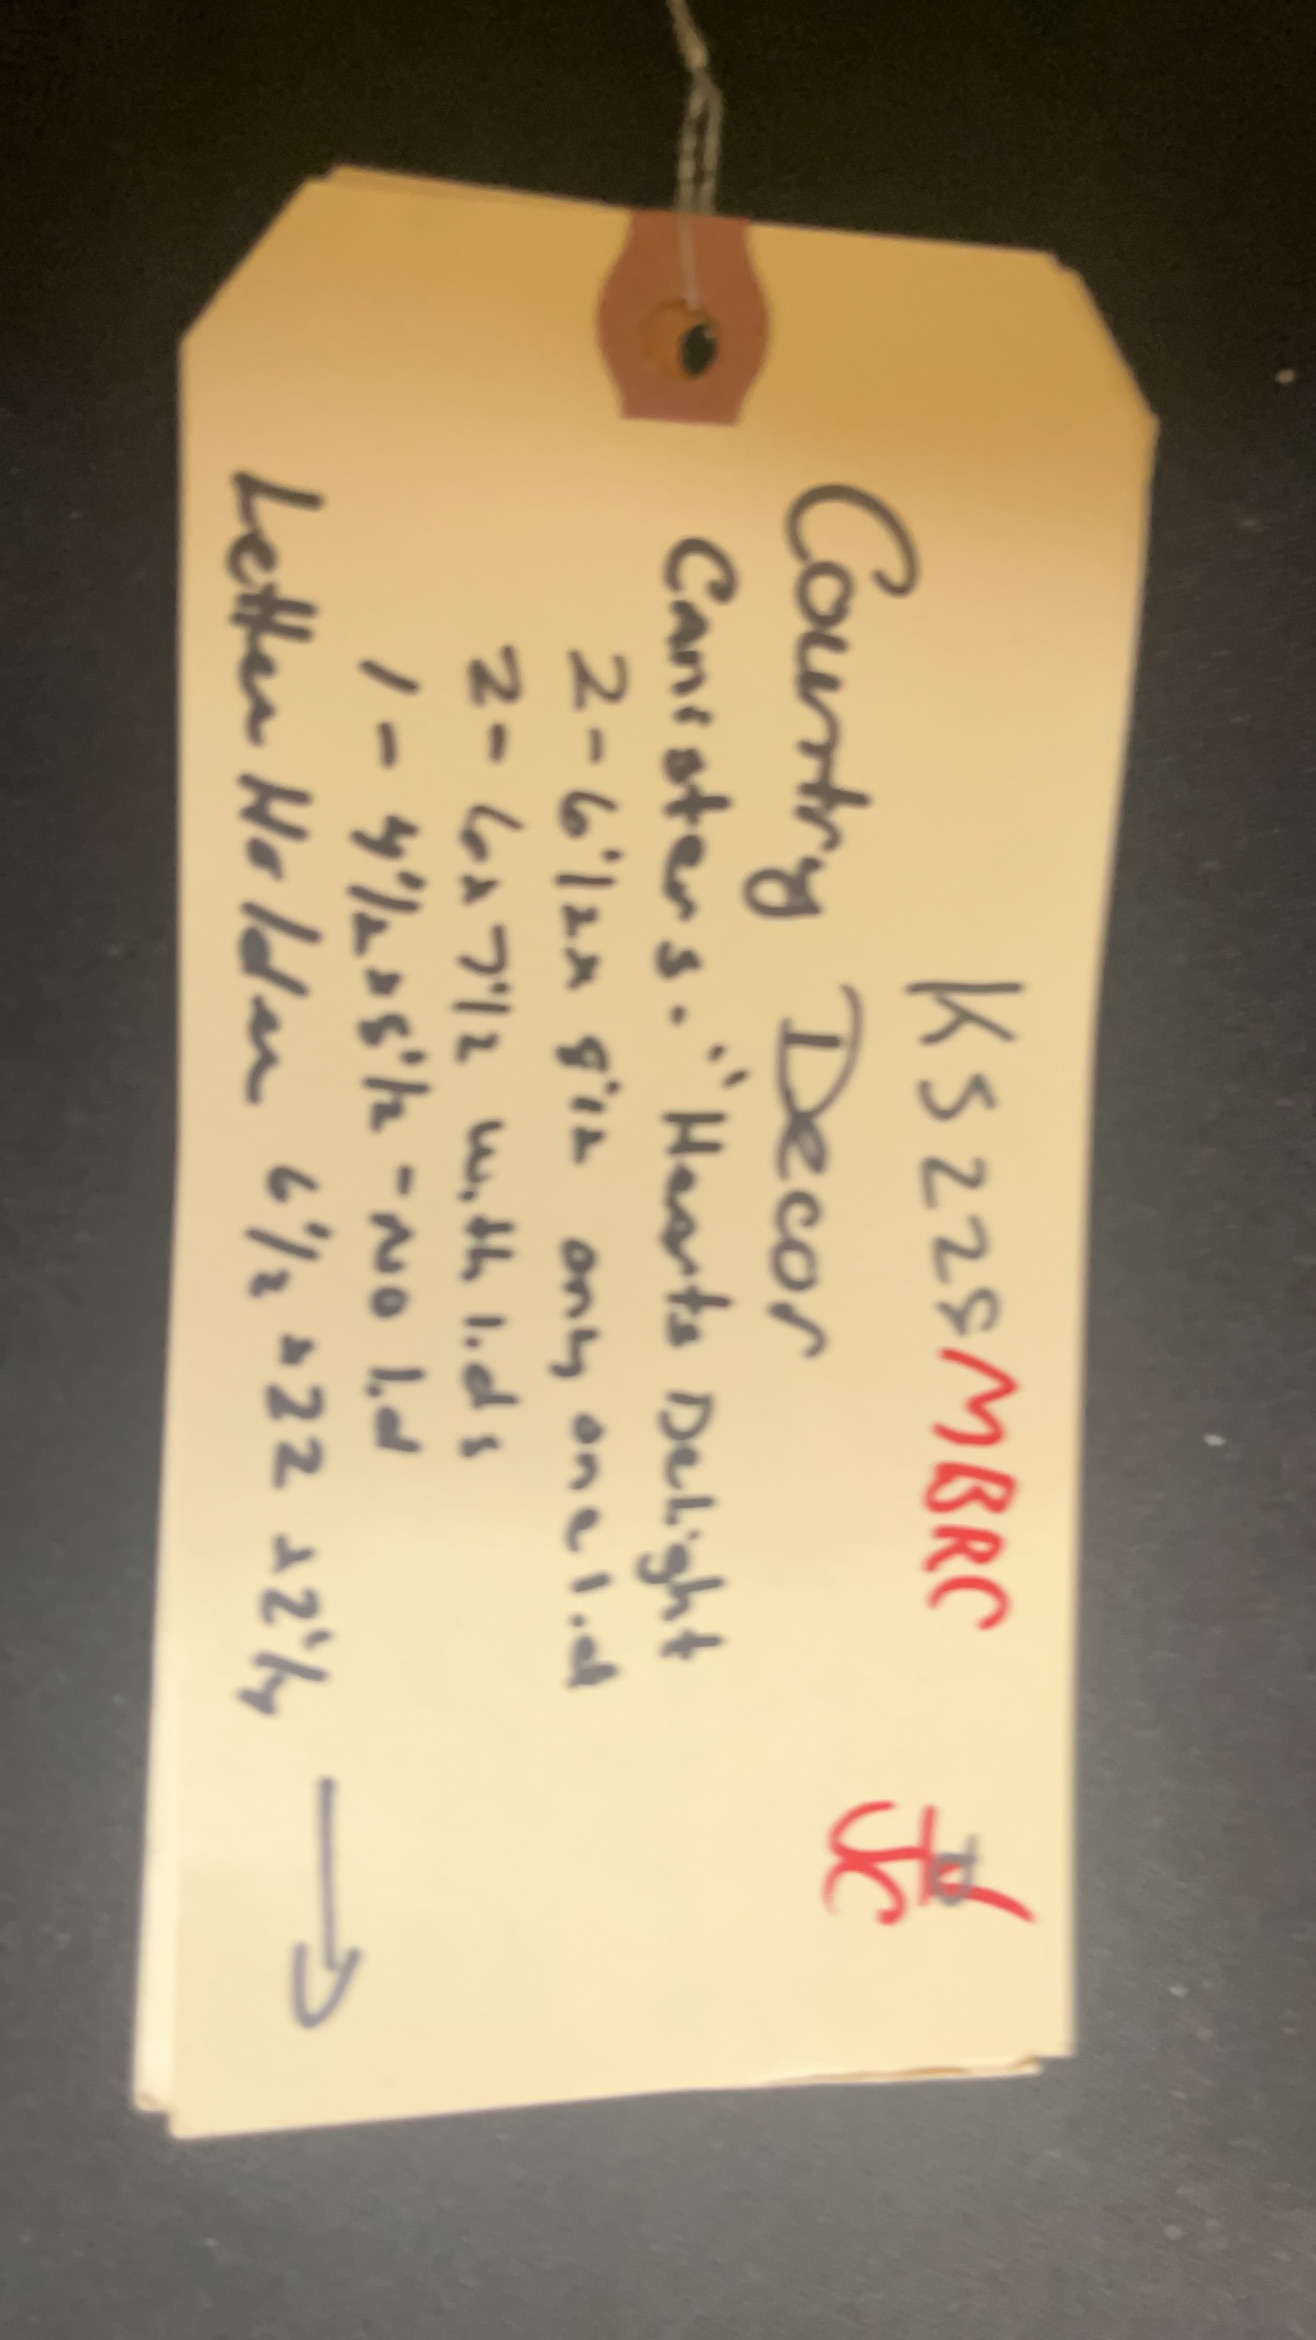 KS228MBRC
JC
Country Decor
Canisters. "Hearts Delight
2-6 1/2 x 8 1/2 only one lid
2- 6x7 1/2 with lids
1- 4 1/2 x 5 1/2 - No lid
Letter Holder 6 1/2 x 22 x 2 1/4 →